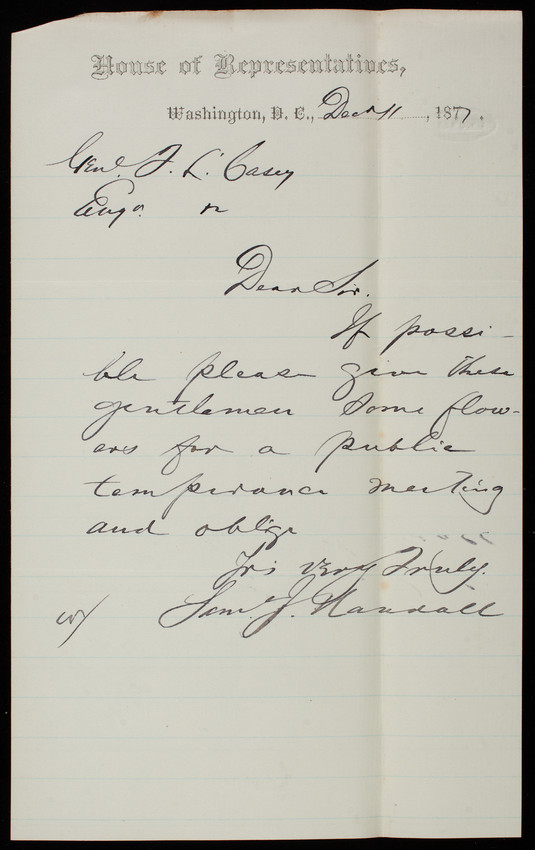 House of Representatives,
Washington, D. C., Dec 11, 1877.
Genl. T. L. Casey
Engr.
Dear Sir.
If possi-
ble please give these
gentlemen some flow-
ers for a public
temperance meeting
and oblige
Yrs very truly.
Sam. J. Randall